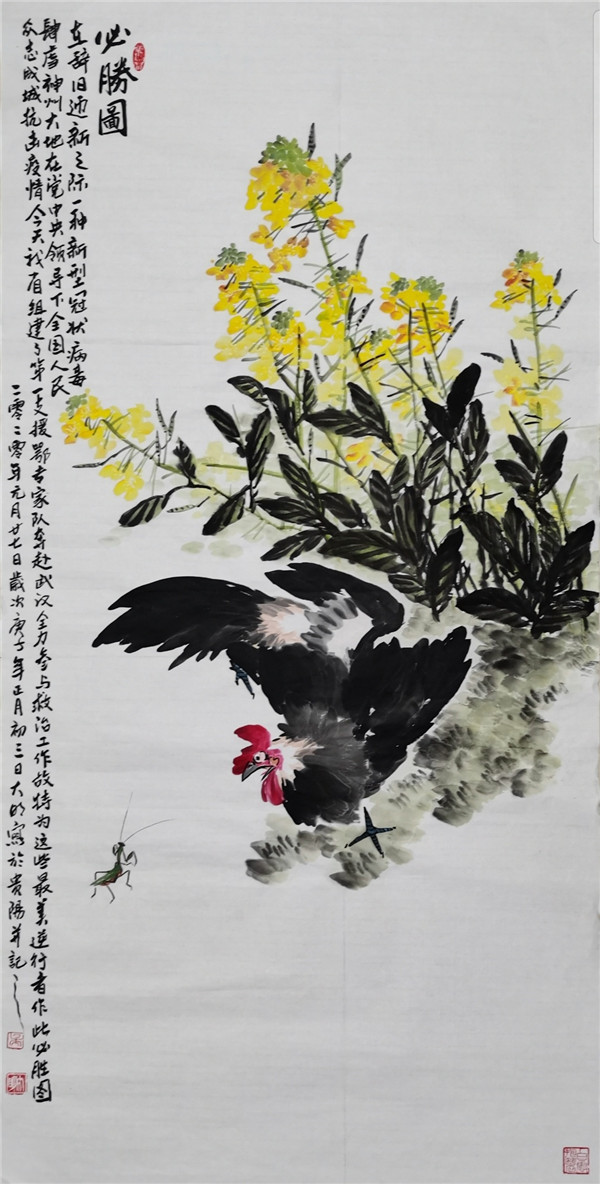 必勝圖
在辞旧迎新之际一种新型冠状病毒
肆虐神州大地在党中央领导下全国人民
众志成城抗击疫情今天我省组建了第一支援鄂专家队奔赴武汉全力参与救治工作故特为这些最美逆行者作此必胜图
二零二零年元月廿七日歲次庚子年正月初三日大寫於貴陽并記之